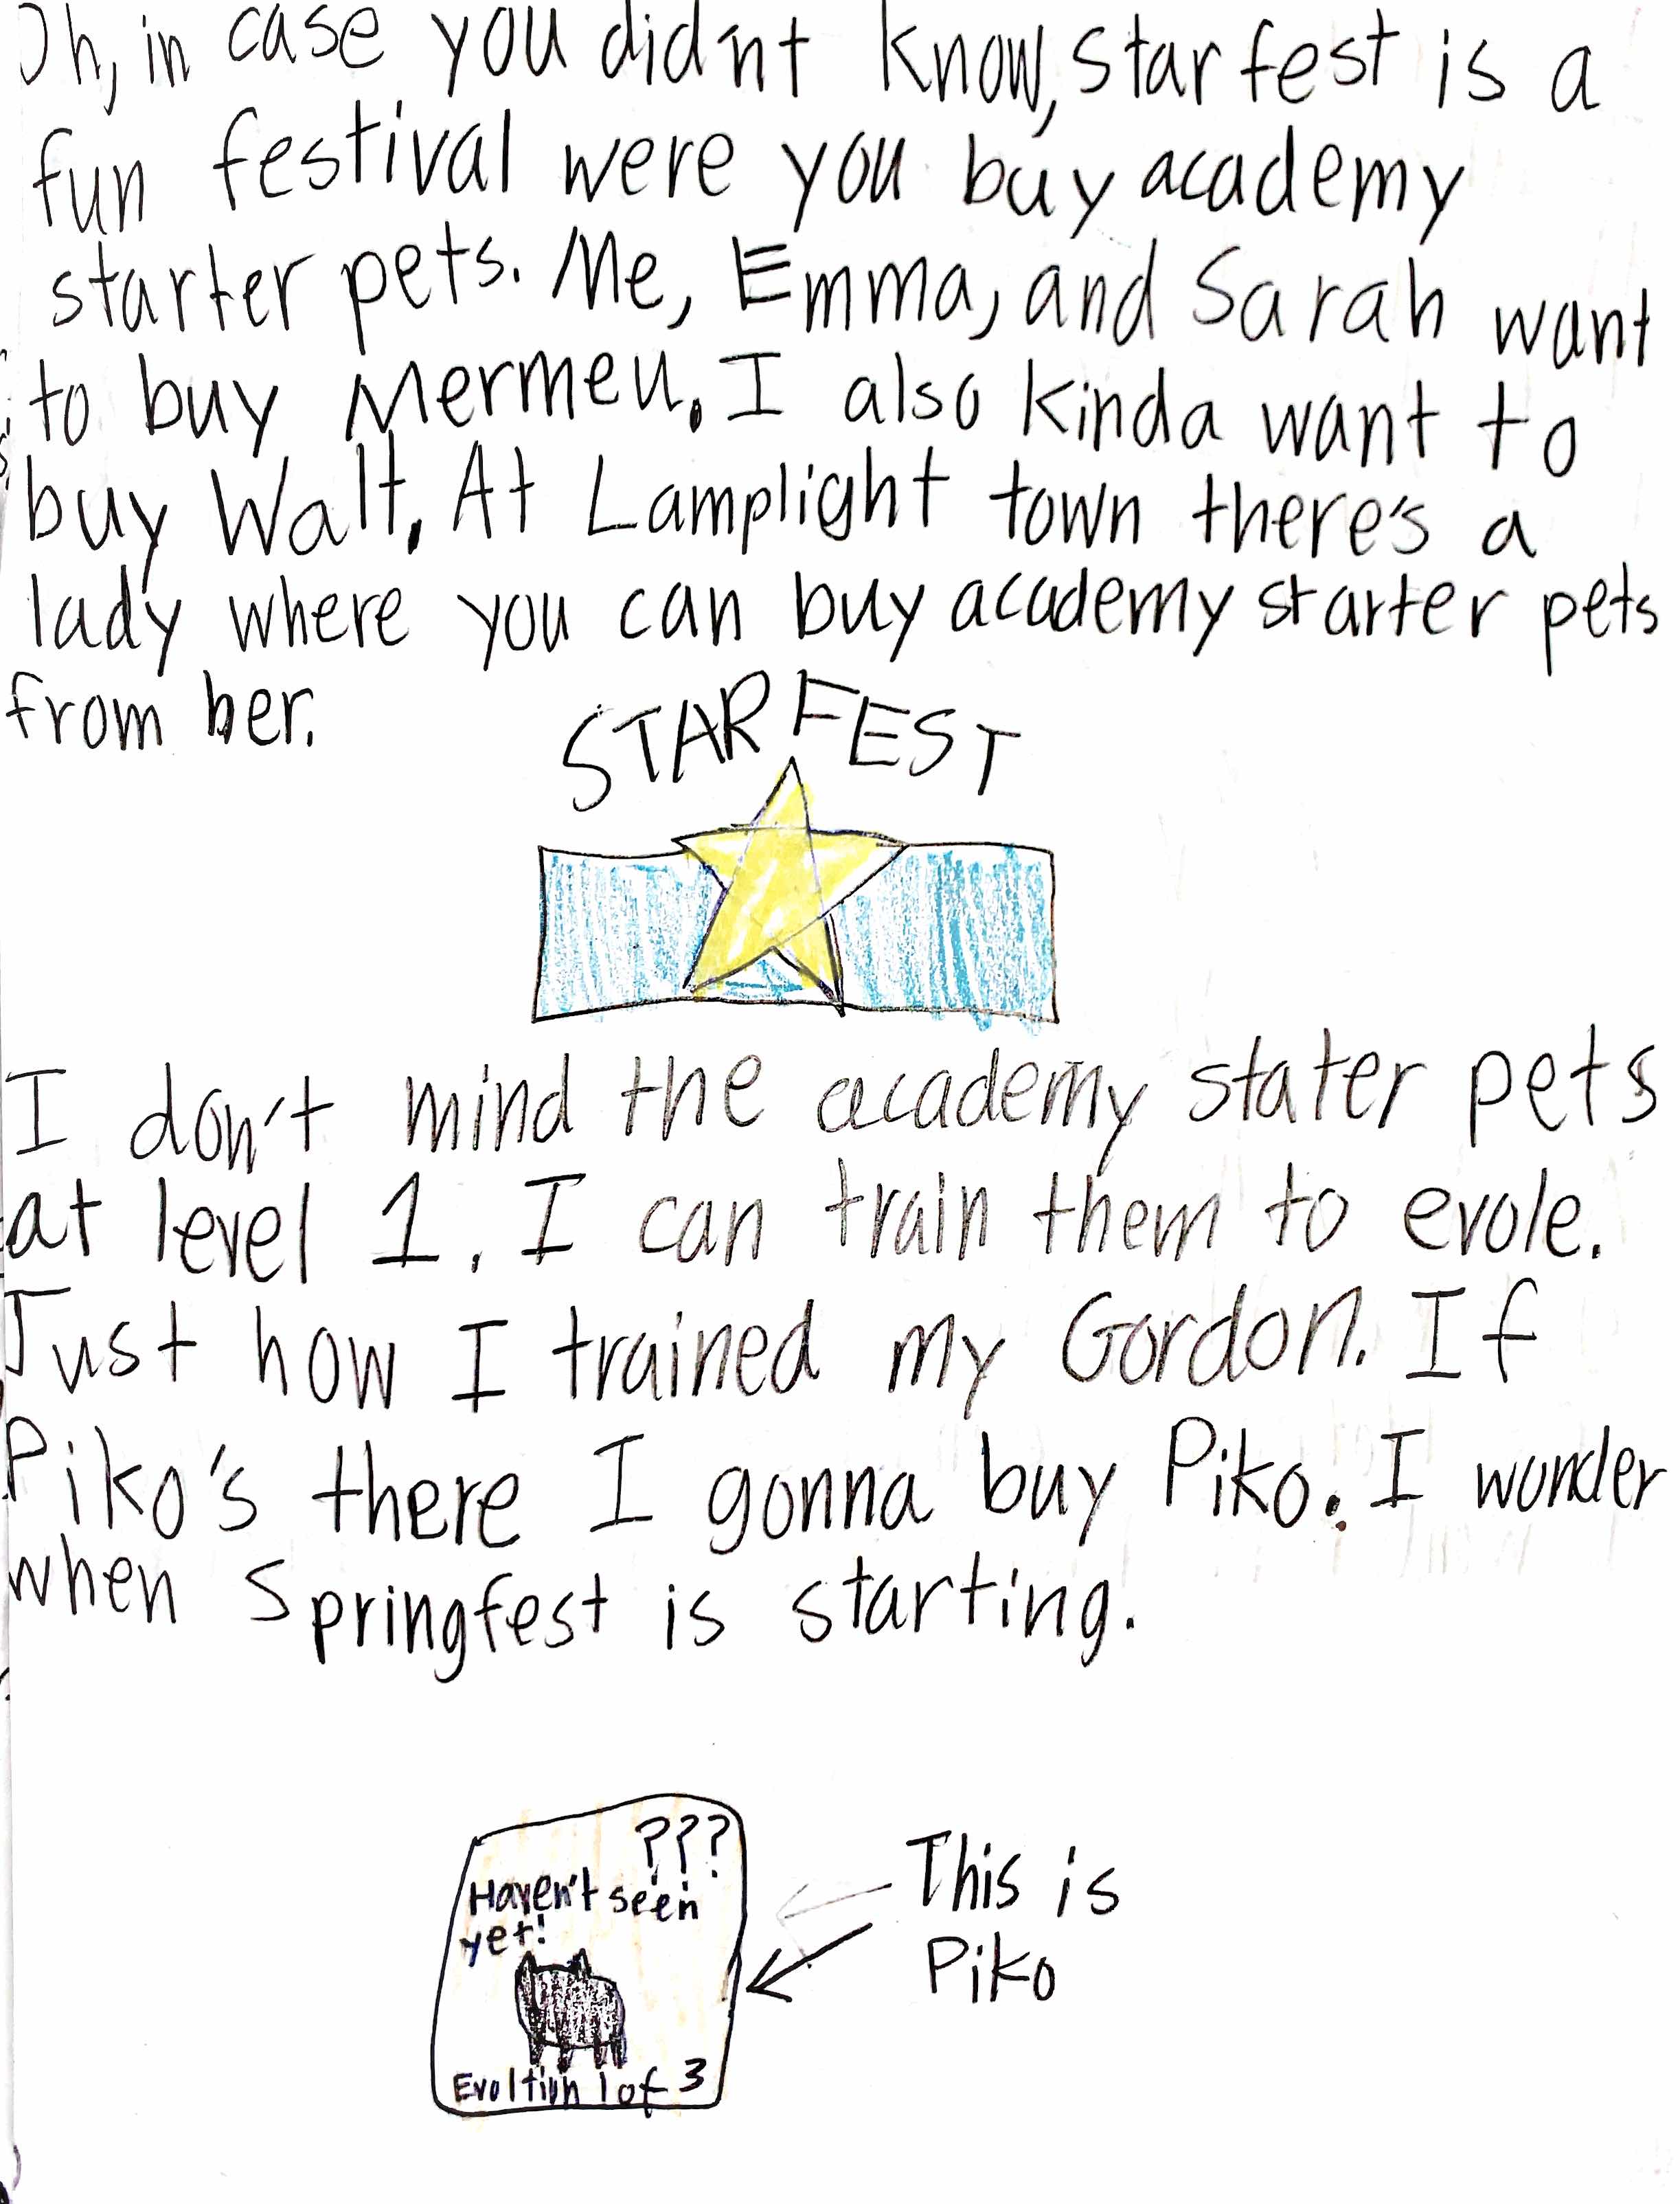 Oh, in case you didn't know, starfest is a
fun festival were you buy academy
starter pets. Me, Emma, and Sarah want
to buy Mermeu. I also kinda want to
buy Walt. At Lamplight town there's a
lady where you can buy academy starter pets
from her.
STARFEST
I don't mind the academy stater pets
at level 1. I can train them to evole.
Just how I trained my Gordon. If
Piko's there I gonna buy Piko. I wonder
when Springfest is starting.
???
Haven't seen
yet!
Evoltion 1 of 3
This is
Piko